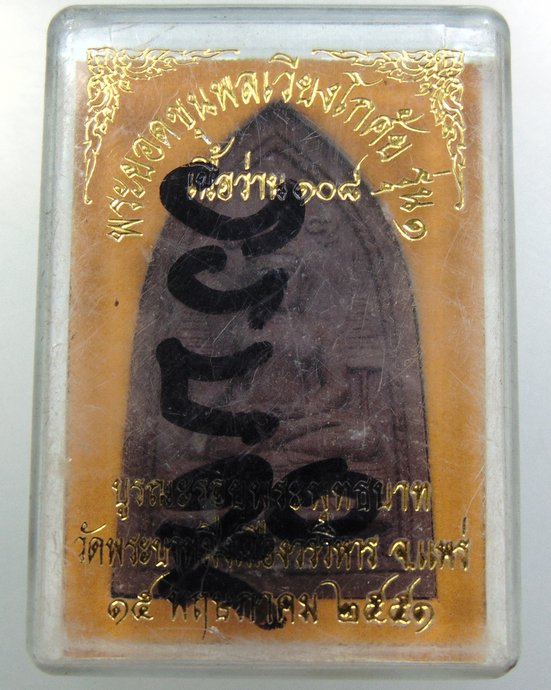 พระยอดขุนพลเวียงโกศัย รุ่น ๑
เนื้อว่าน ๑๐๘
บูรณะรอยพระพุทธบาท
วัดพระบาทมิ่งเมืองวรวิหาร จ.แพร่
๑๕ พฤษภาคม ๒๕๕๑